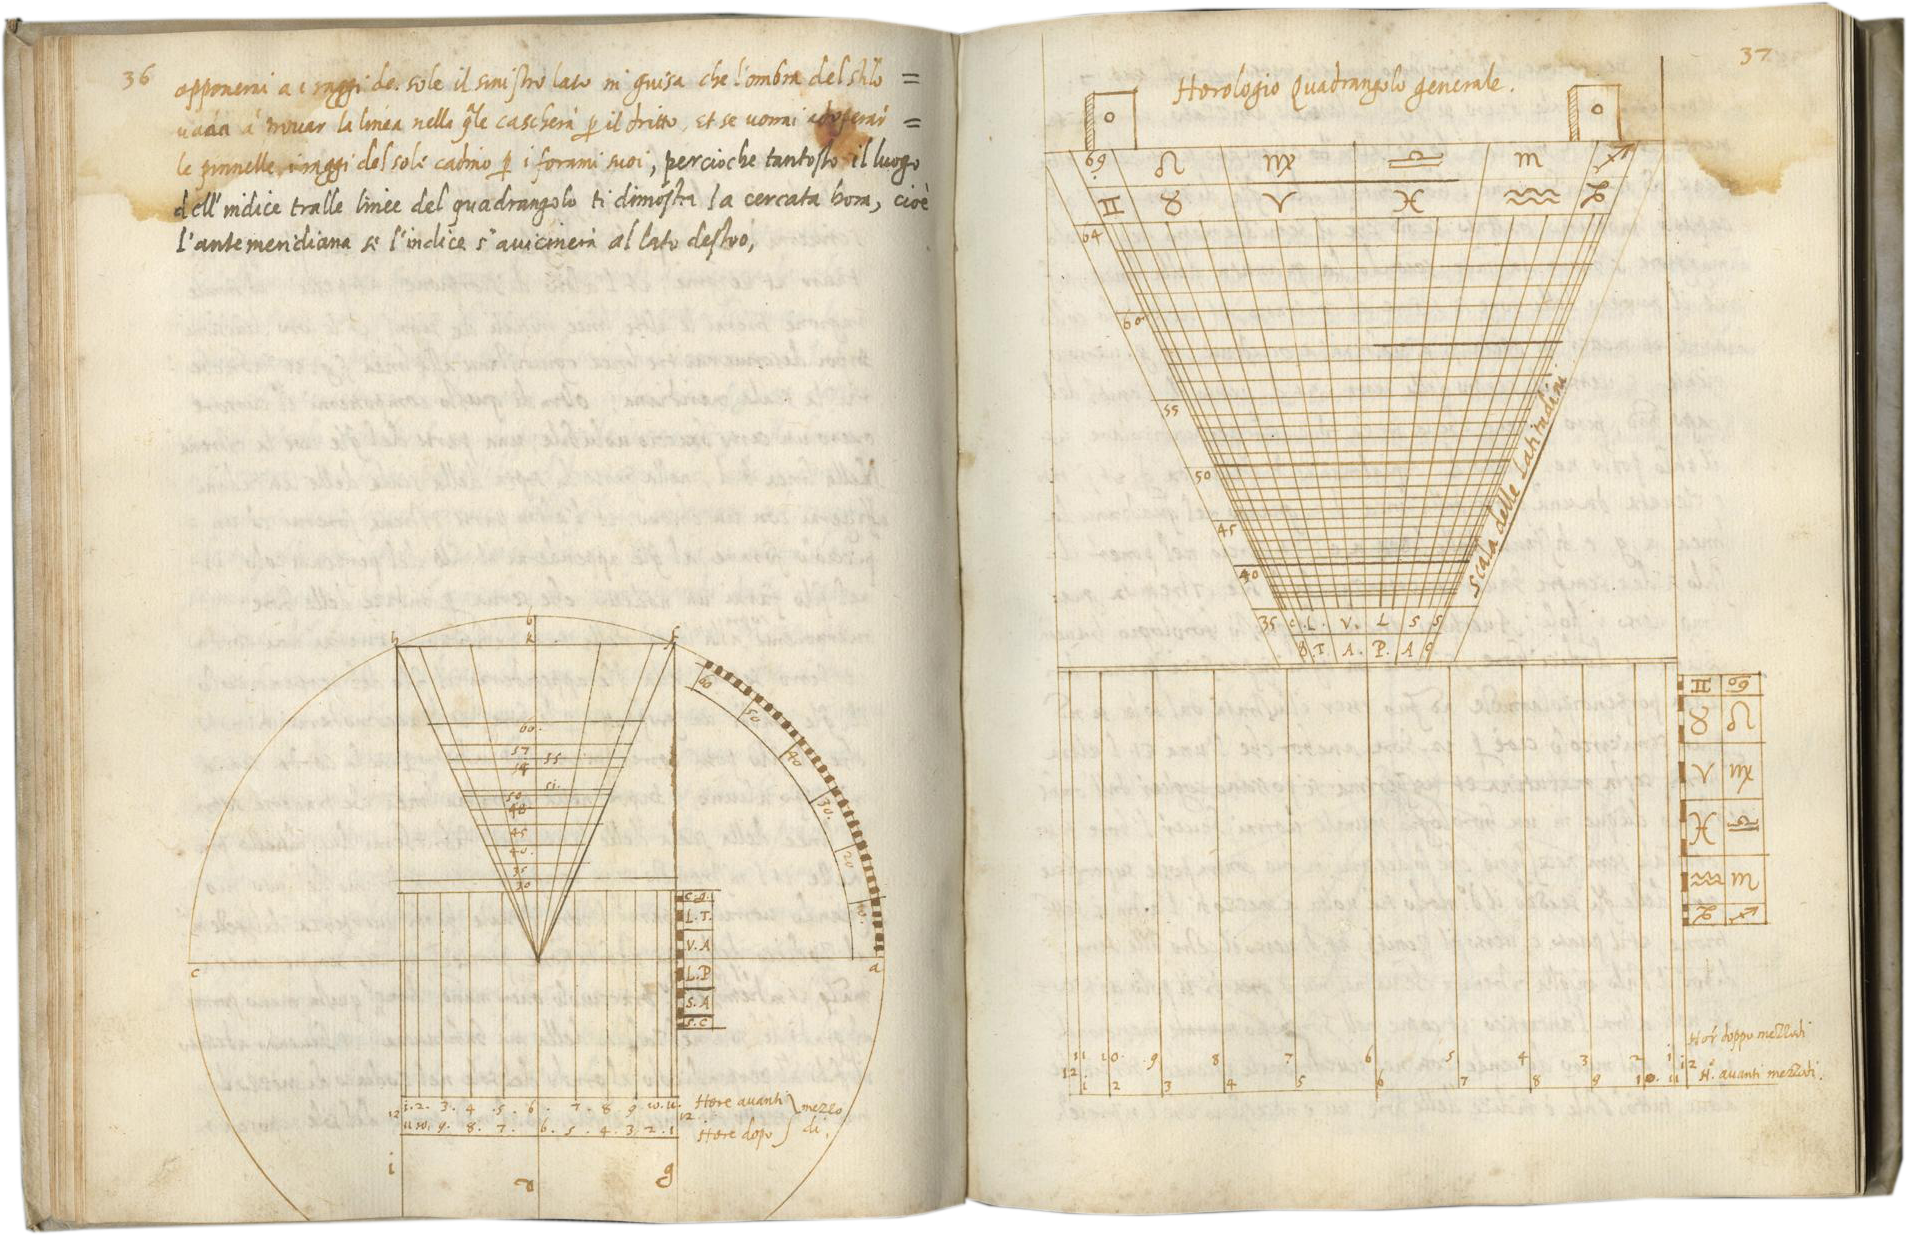 36
opponerai a i raggi del sole il sinistro lato in guisa che l'ombra del stilo =
uada a trouar la linea nella q̃le cascherà p il dritto, Et se uorrai adoperar =
le pinnelle, i raggi del sole cadino p i forami suoi, percioche tantosto il luogo
dell'indice tralle linee del quadrangolo ti dimostra la cercata hora, cioè
l'antemeridiana se l'indice s'auicinerà al lato destro,
b
h k f
60 50 40 30. 20 10.
60.
57 55
54
50 51.
48
45
40.
35
30
c a
L.T.
V.A
L.P
S.A
S.C
12 1. 2. 3. 4 .5. 6. 7. 8 9 10. 11. 12 Hore auanti mezzo
11. 10. 9. 8. 7. 6. 5. 4. 3. 2. 1 Hore dopo di.
i g
37
Horologio Quadrangolo generale.
♋ ♌ ♍ ♎ ♏ ♐
♊ ♉ ♈ ♓ ♒ ♑
64
60
55
50
45
40
35
Scala delle Latitudini
L. V. L S S
T. A. P. A
♊ ♋
♉ ♌
♈ ♍
♓ ♎
♒ ♏
♑ ♐
11 10. 9 8 7 6 5 4 3 2 1 Hor doppo mezzodi
12 1 2 3 4 5 6 7 8 9 10. 11 12 H. auanti mezzodi.
12